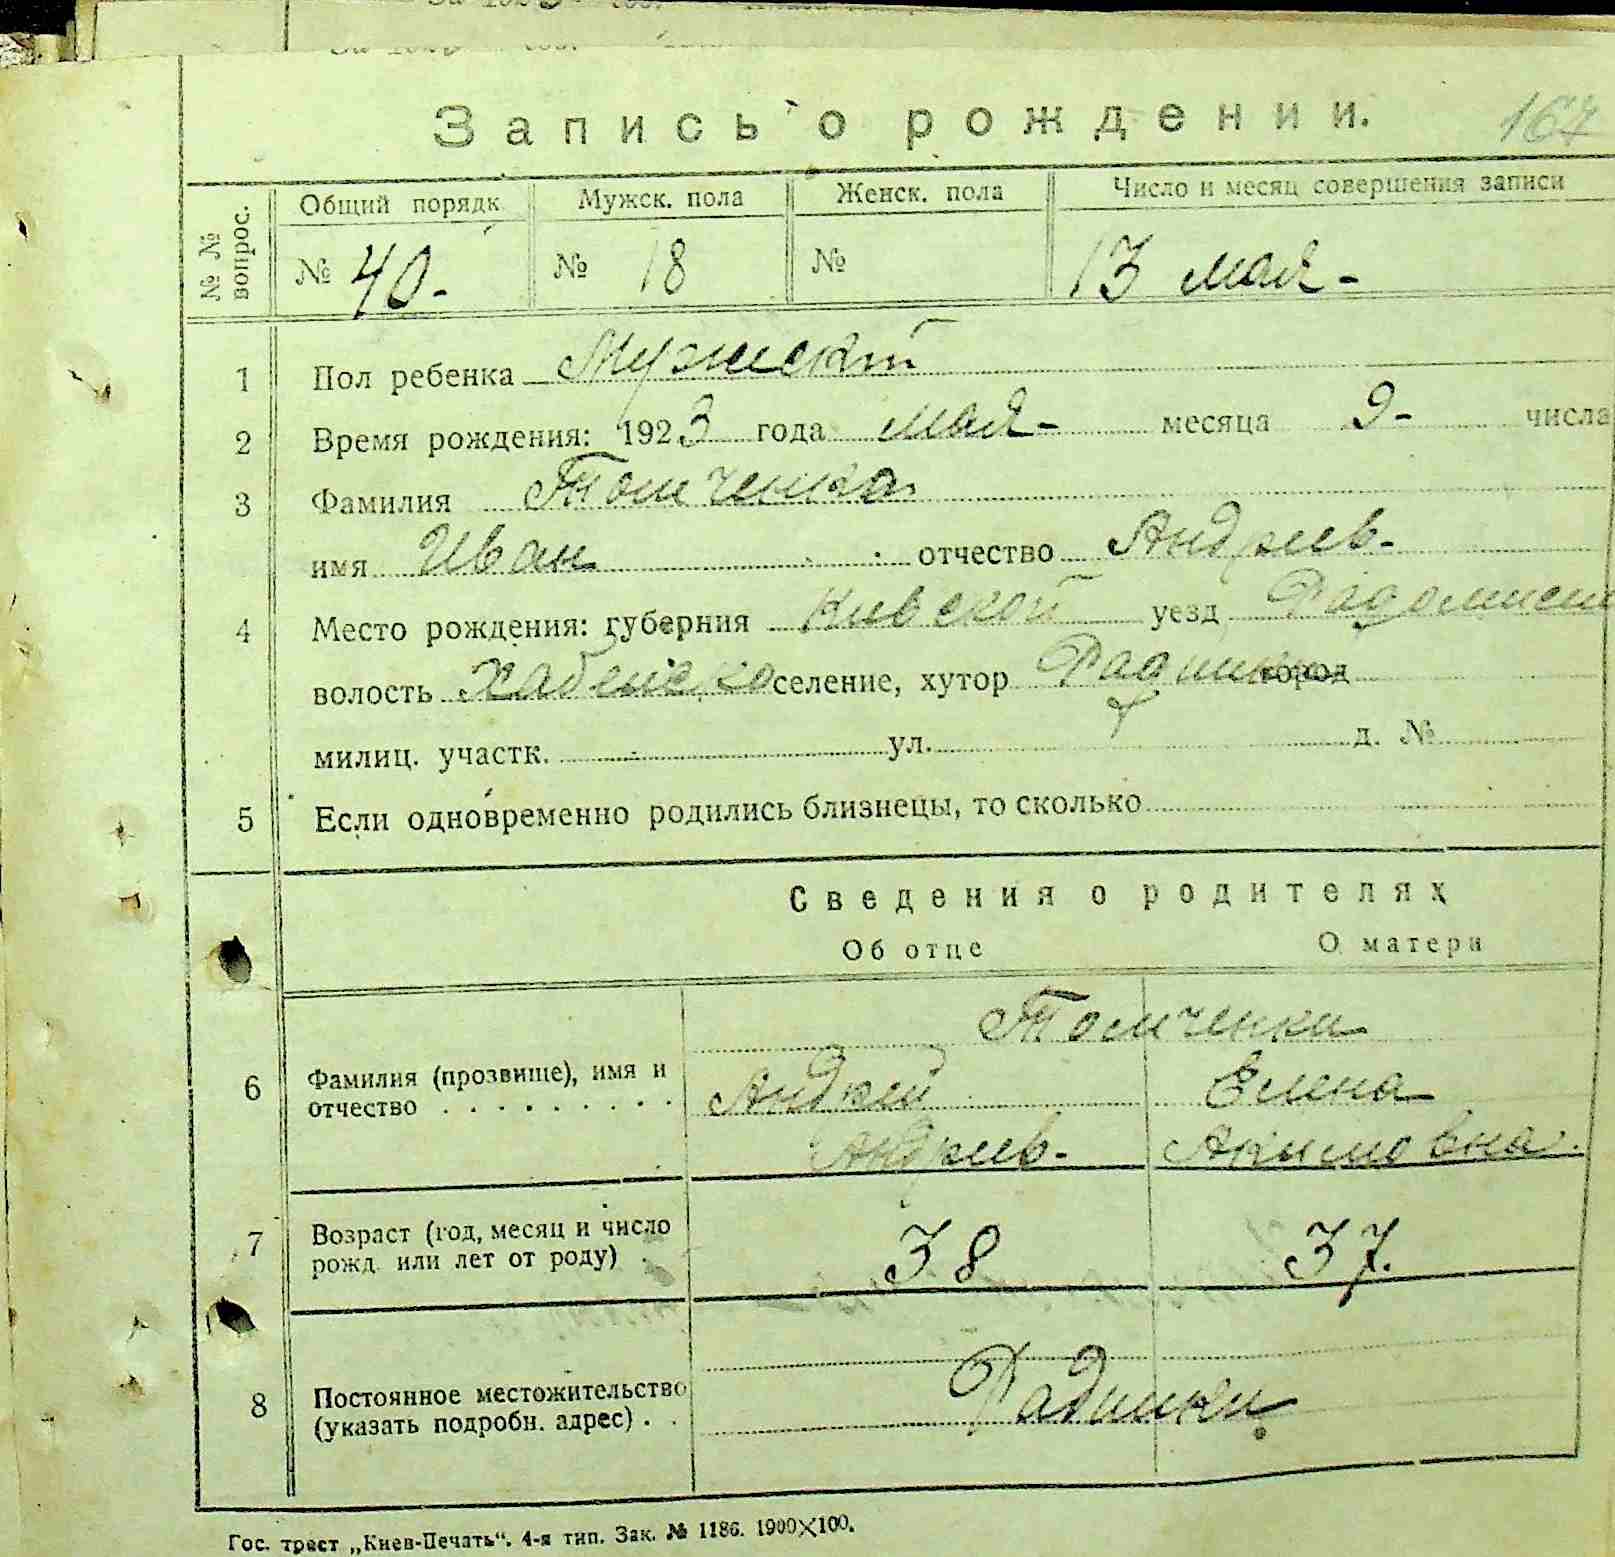 Запись о рождении.
167
№ № вопрос.
Общий порядк
Мужск. пола
Женск. пола
Число и месяц совершения записи
№ 40.-
№ 18
№
13 мая-
1 Пол ребенка Мужской
2 Время рождения: 1923 года мая- месяца 9- числа
3 Фамилия
имя Иван отчество Андреев-
4 Место рождения: губерния Киевской уезд
волость Хабенско селение, хутор город
милиц. участк. ул. д. №
5 Если одновременно родились близнецы, то сколько
Сведения о родителях
Об отце О матери
6 Фамилия (прозвище), имя и
отчество
Андрей Елена
Андреев- Акимовна.
7 Возраст (год, месяц и число
рожд. или лет от роду)
38 37.
8 Постоянное местожительство
(указать подробн. адрес)
Гос. трест „Киев-Печать“. 4-я тип. Зак. № 1186. 1900×100.